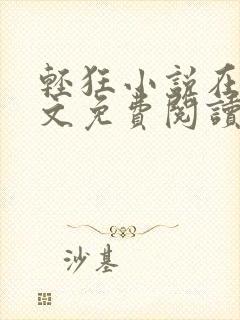 輕狂小說在
文免費閱讀
沙基